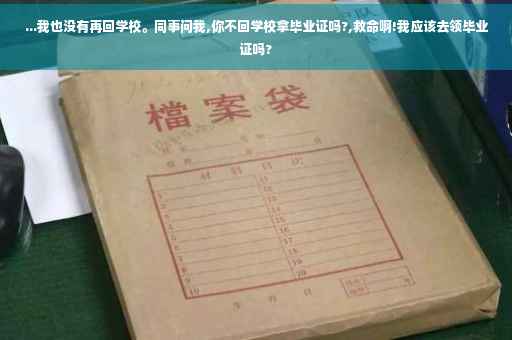 ...我也没有再回学校。同事问我,你不回学校拿毕业证吗?,救命啊!我应该去领毕业
证吗?
檔案袋
材料目次
1
2
3
4
5
6
7
8
9
10
11
12
13
14
15
16
17
18
19
20
年 月 日